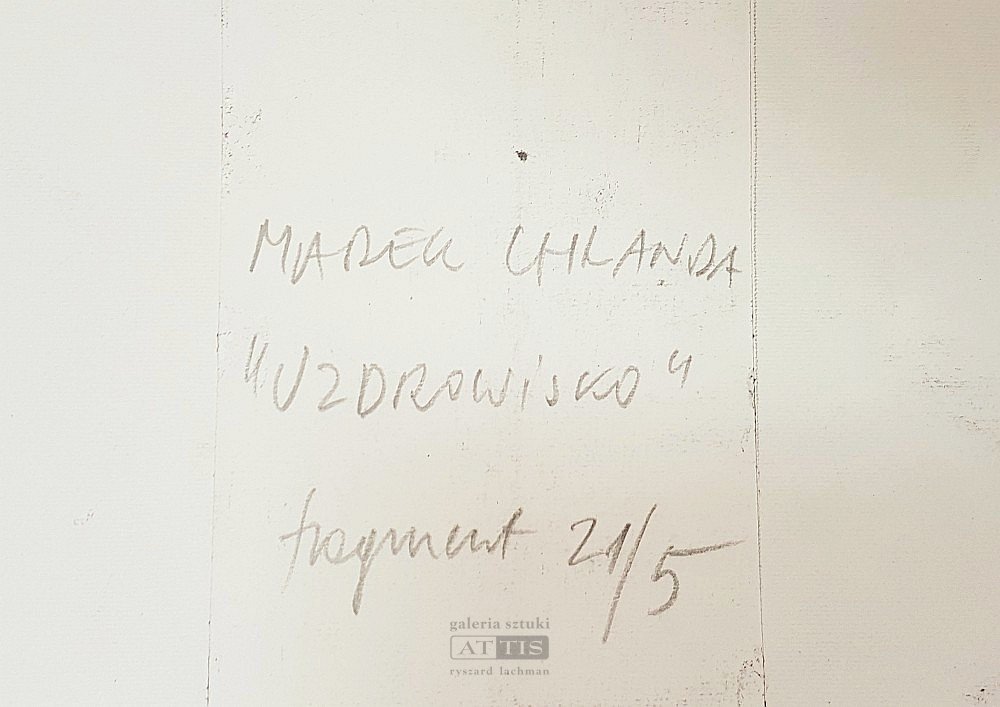 MAREK CHLANDA
"UZDROWISKO"
fragment 21/5
galeria sztuki
ATTIS
ryszard lachman